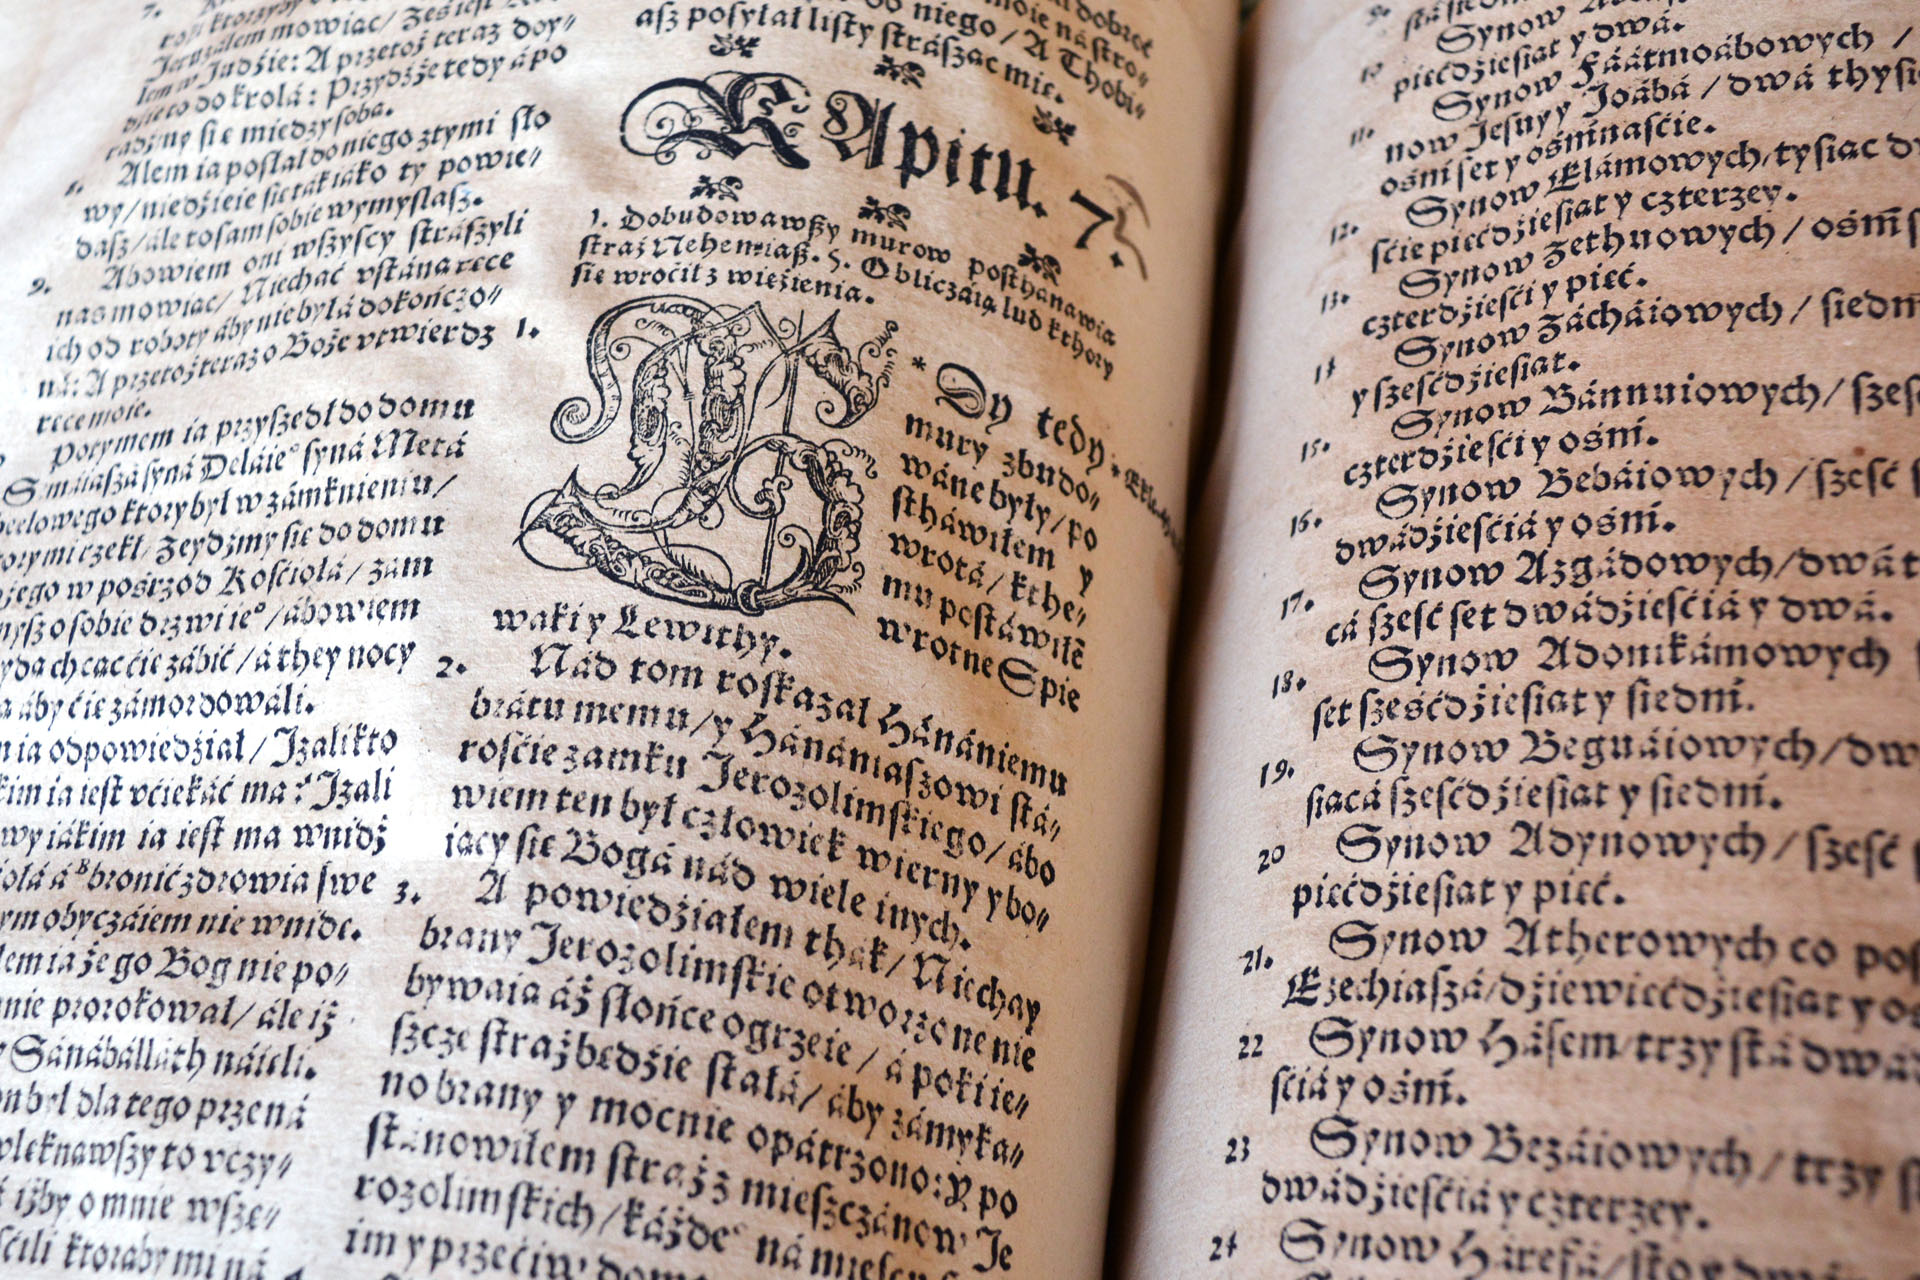 Jeruzalem mowiac/ Ześ iest
lem w Judźie: A przetoż teraz doy⸗
dźie to do krolá: Przydźże tedy ápo
radźmy sie miedzy soba.
8. Alem ia posłał do niego z tymi sło
wy/ niedźieie sie ták iáko ty powie⸗
dasz/ ále to sam sobie wymyslasz.
9. Abowiem oni wszyscy strászyli
nas mowiac/ Niechać vstána rece
ich od roboty áby nie byłá dokończo⸗
ná: A przetoż teraz o Boże vtwierdz
rece moie.
Potymem ia przyszedł do domu
Semaiaszá syná Deláie° syná Metá
beelowego ktory był w zámknieniu/
ktory mi rzekł/ Zeydźmy sie do domu
w pośrzod Kośćiołá/ zám
o sobie drzwi ie°/ ábowiem
chcac ćie zábić/ á they nocy
áby ćie zámordowáli.
ia odpowiedźiał/ Jzali kto
ia iest vćiekáć ma: Jzali
iákim ia iest ma wnidź
á bronić zdrowia swe
tym obyczáiem nie wnide.
że go Bog nie po⸗
mnie prorokował/ ále iż
y Sánábálláth náieli.
był dla tego przená
vleknawszy to vczy⸗
iżby o mnie wsze⸗
ktoraby mi ná
do niego/ A Thobi⸗
asz posyłał listy strászac mie.
KApitu. 7.
1. Dobudowawszy murow posthanawia
straż Nehemiasz. 5. Obliczáia lud kthory
sie wroćił z wieżienia.
1. * Dy tedy
mury zbudo⸗
wáne były/ po
stháwiłem y
wrotá/ kthe⸗
mu postáwiłē
wrotne Spie
waki y Lewithy.
2. Nád tom roskazał Hánániemu
brátu memu/ y Hánániaszowi stá⸗
rośćie zamku Jerozolimskiego/ ábo
wiem ten był człowiek wierny y bo⸗
iacy sie Bogá nád wiele inych.
3. A powiedźiałem thak/ Niechay
brany Jerozolimskie otworzone nie
bywaia áż słońce ogrzeie/ á poki ie⸗
szcze straż bedźie stałá/ áby zámyka⸗
no brany y mocnie opátrzono: Y po
stanowiłem straż z mieszczánow Je
rozolimskich/ káżde° ná miescu
im y przećiw domu
piećdźiesiat y dwá.
11. Synow Fáátmoábowych/
now Jesuy y Joábá/ dwá thysi
ośm set y ośmnasćie.
12. Synow Elámowych/ tysiac dw
śćie piećdźiesiat y czterzey.
13. Synow Zethuowych/ ośm s
czterdźiesći y pieć.
14 Synow Zácháiowych/ siedm
y sześćdźiesiat.
15. Synow Bánnuiowych/ szesć
czterdźiesći y ośm.
16. Synow Bebáiowych/ szesć s
dwádźiesćiá y ośm.
17. Synow Azgádowych/ dwá t
cá szesć set dwádźiesćiá y dwá.
18. Synow Adonikámowych
set szesćdźiesiat y siedm.
19. Synow Beguáiowych/ dw
siacá szesćdźiesiat y siedm.
20 Synow Adynowych/ szesć
piećdźiesiat y pieć.
21. Synow Atherowych co pos
Ezechiaszá/ dźiewiećdźiesiat y oś
22 Synow Hásem/ trzy stá dwá
śćiá y ośm.
23 Synow Bezáiowych/ trzy s
dwádźiesćiá y czterzey.
24 Synow Hárefá/ sto y